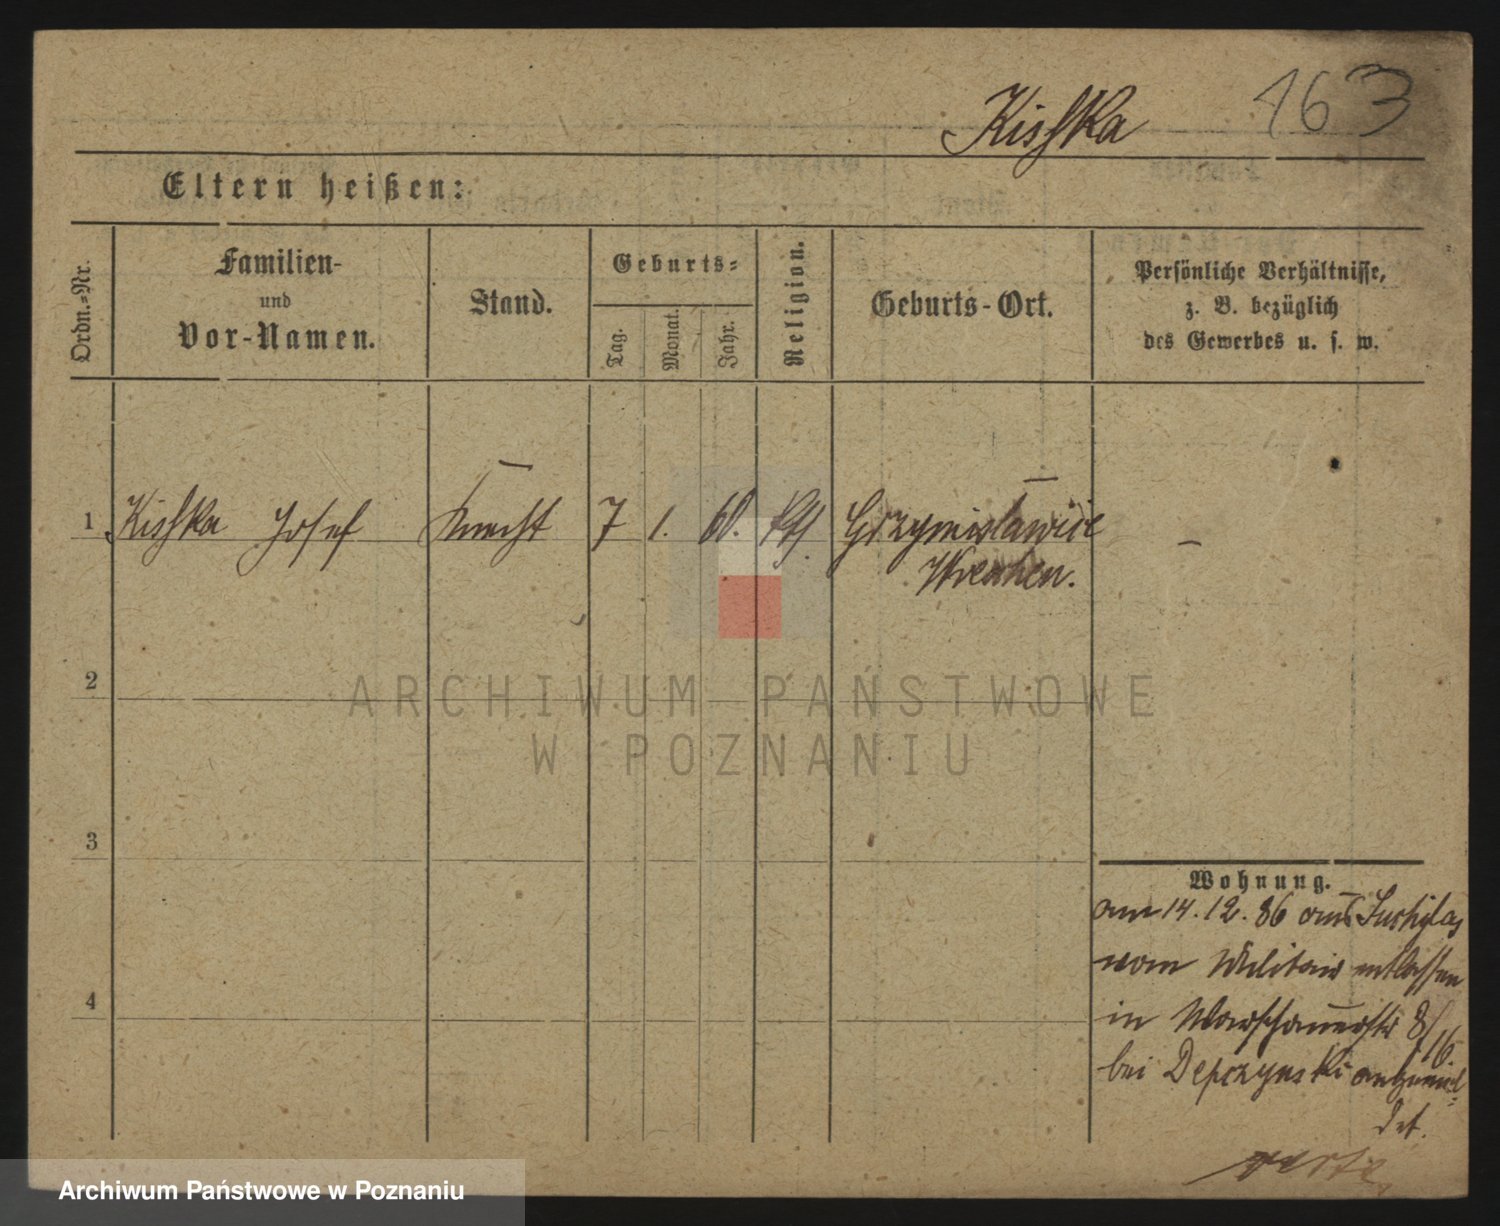 163
Kischka
Eltern heißen:
Ordn.=Nr.
Familien-
und
Vor-Namen.
Stand.
Geburts=
Tag.
Monat.
Jahr.
Religion.
Geburts-Ort.
Persönliche Verhältnisse,
z. B. bezüglich
des Gewerbes u. s. w.
1 Kischka Josef Knecht 7 1. 60. kth. Grzymislawice
Wreschen.
2
3
4
ARCHIWUM PAŃSTWOWE
W POZNANIU
Wohnung.
am 14.12.86 aus
vom Militair entlassen
in Warschauerstr 8/16.
bei Depczynski angemel=
det.
verte
Archiwum Państwowe w Poznaniu